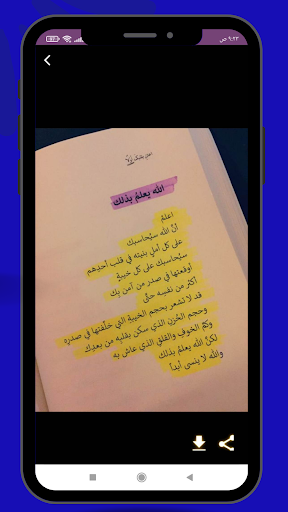 ٩:٢٣ ص
الله يعلمُ بذلك
اعلمْ
أنَّ الله سيُحاسبك
على كل أملٍ بنيته في قلب أحدِهم
سيُحاسبك على كل خيبةٍ
أوقعتها في صدرِ من آمن بك
أكثر من نفسِه حتَّى
قد لا تشعر بحجمِ الخيبةِ التي خلَّفتها في صدره
وحجمِ الحُزن الذي سكن بقلبه من بعدِك
وكمّ الخوفِ والقلقِ الذي عاش به
لكنَّ الله يعلمُ بذلك
والله لا ينسى أبداً